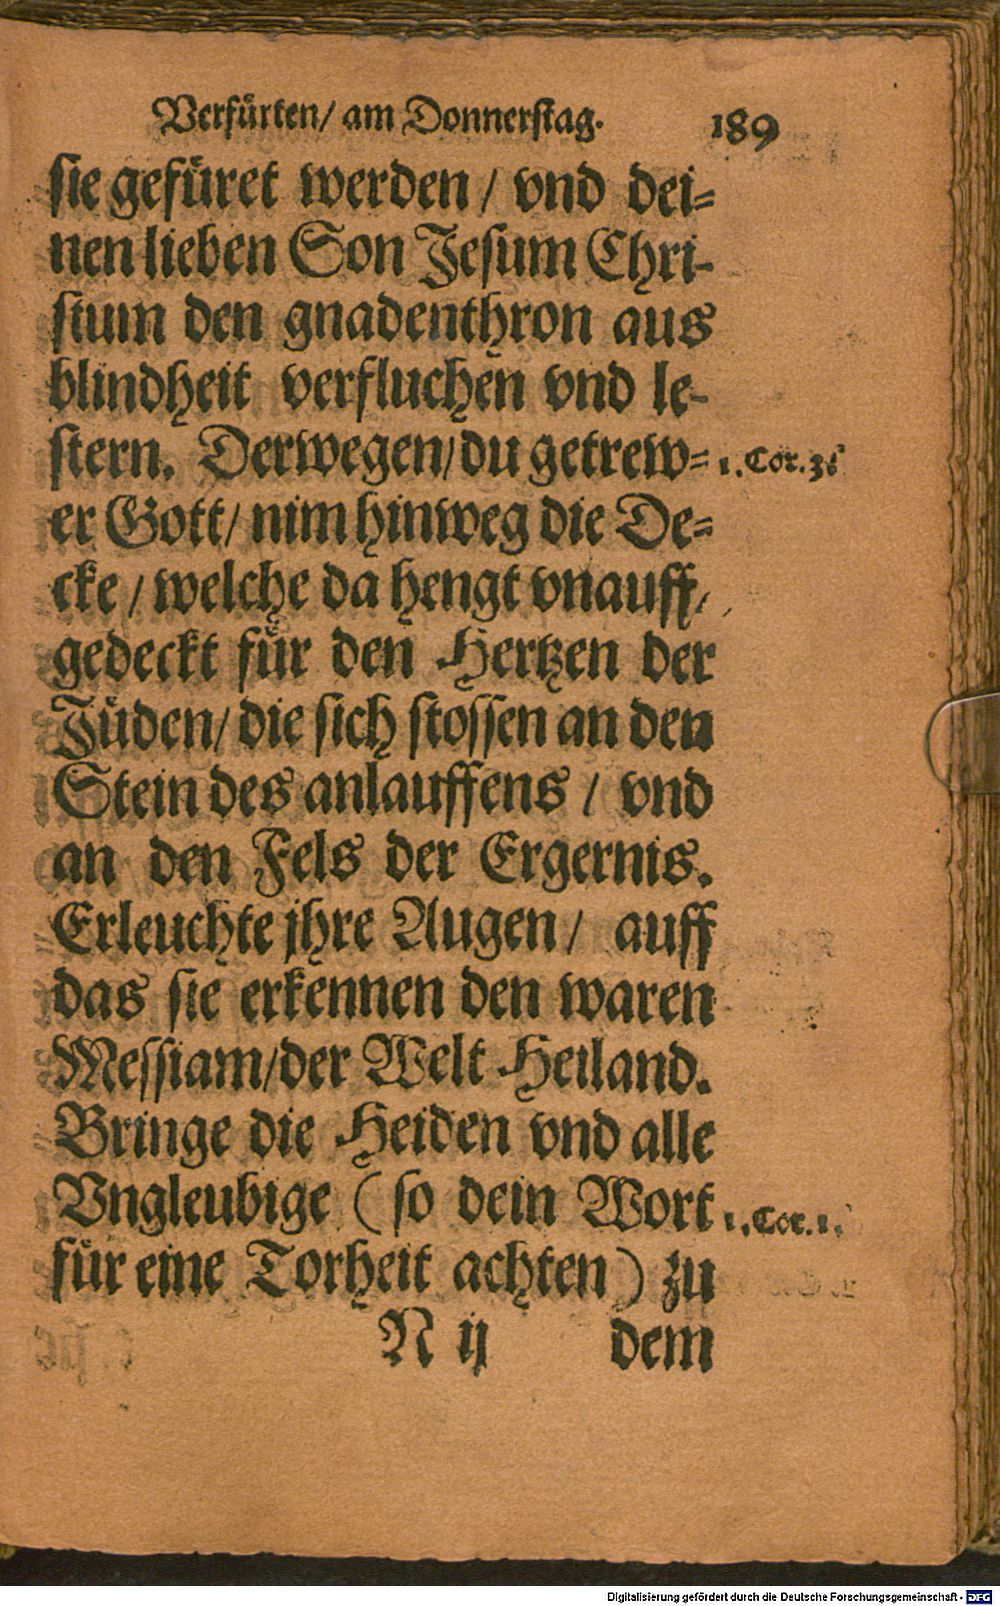 Verfürten/ am Donnerstag. 189
sie gefüret werden / vnd dei=
nen lieben Son Jesum Chri-
stum den gnadenthron aus
blindheit verfluchen vnd le-
stern. Derwegen/du getrew= 1. Cor. 3.
er Gott/ nim hinweg die De=
cke / welche da hengt vnauff,
gedeckt für den Hertzen der
Jüden/ die sich stossen an den
Stein des anlauffens / vnd
an den Fels der Ergernis.
Erleuchte jhre Augen / auff
das sie erkennen den waren
Messiam/der Welt Heiland.
Bringe die Heiden vnd alle
Vngleubige (so dein Wort 1. Cor. 1.
für eine Torheit achten) zu
N ij dem
Digitalisierung gefördert durch die Deutsche Forschungsgemeinschaft - DFG